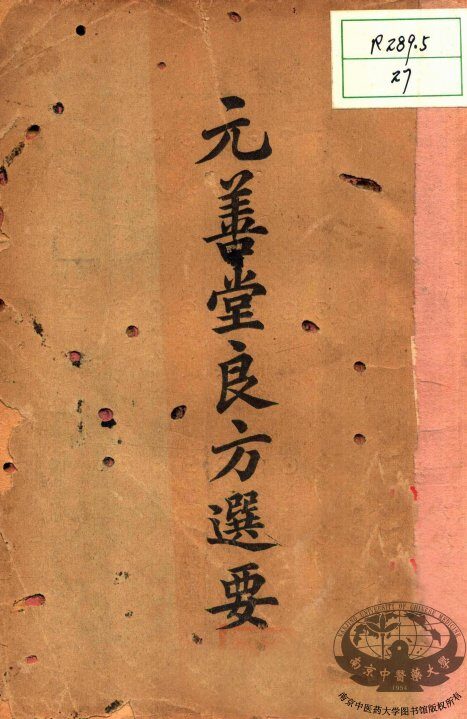 R289.5
27
元善堂良方選要
NANJING UNIVERSITY OF CHINESE MEDICINE
南京中醫藥大學
1954
南京中医药大学图书馆版权所有